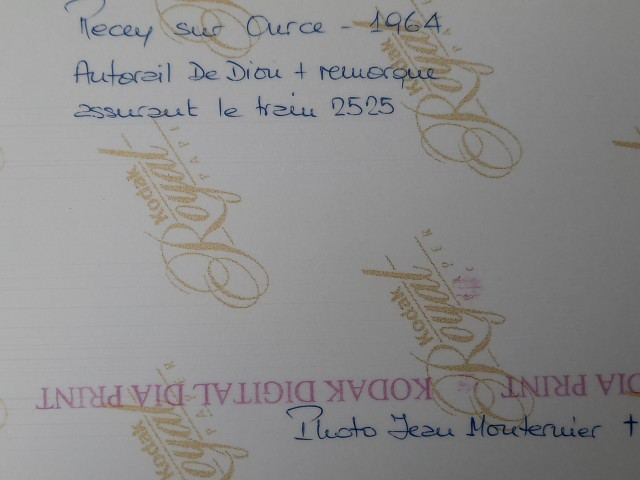 Recey sur Ource - 1964
Autorail De Dion + remorque
assurant le train 2525
Kodak
Royal
PAPER
Kodak
Royal
PAPER
Kodak
Royal
PAPER
KODAK DIGITAL DIA PRINT
DIA PRINT
Kodak
Photo Jean Monternier +